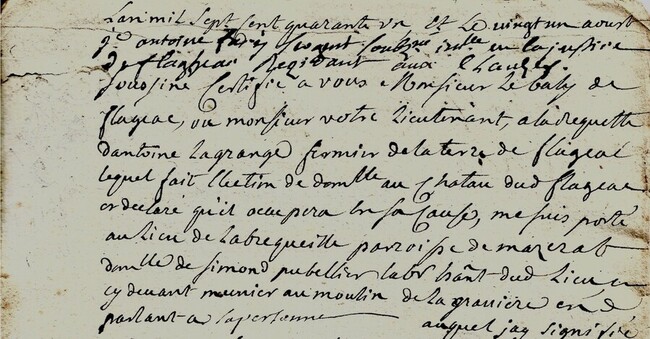 Lan mil sept sent quarante un et le vingt un aoust
je antoine sergent en la justice
de flageac Residant aux
soussine Certifie a vous Monsieur Le baly de
flageac, ou monsieur votre Lieutenant, a la Requette
dantoine Lagrange fermier de la terre de flageac
lequel fait llection de domlle au Chatau dud flageac
et declaré qu'il occupera en sa Cause, me suis porté
au Lieu de Labregueille parroisse de mazerat
domlle de simond pubellier labr hant dud Lieu
cy devant meunier au moulin de la graviere
parlant a sapersonne auquel jay signifié